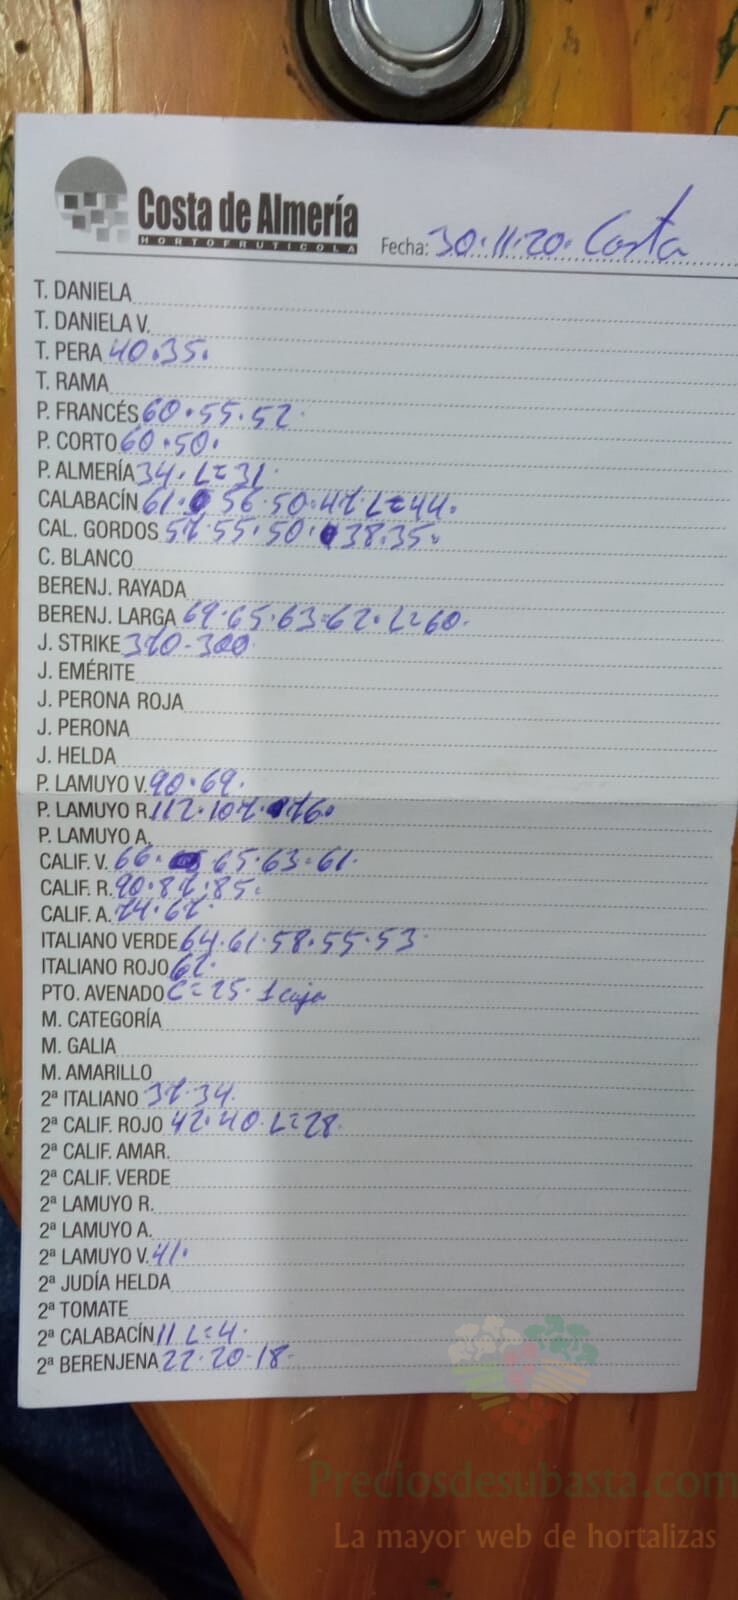 Costa de Almería
HORTOFRUTICOLA
Fecha: 30.11.20. Costa
T. DANIELA
T. DANIELA V.
T. PERA 40.35.
T. RAMA
P. FRANCÉS 60.55.52.
P. CORTO 60.50.
P. ALMERÍA 34. L=31.
CALABACÍN 61. 56.50.47 L=44.
CAL. GORDOS 57 55.50. 38.35.
C. BLANCO
BERENJ. RAYADA
BERENJ. LARGA 69.65.63.62. L=60.
J. STRIKE 370-300.
J. EMÉRITE
J. PERONA ROJA
J. PERONA
J. HELDA
P. LAMUYO V. 90.69.
P. LAMUYO R. 112.107. 76.
P. LAMUYO A.
CALIF. V. 66. 65.63.61.
CALIF. R. 90.87.85.
CALIF. A. 74.67.
ITALIANO VERDE 64.61.58.55.53.
ITALIANO ROJO 67.
PTO. AVENADO C=25. 1 caja
M. CATEGORÍA
M. GALIA
M. AMARILLO
2ª ITALIANO 37.34.
2ª CALIF. ROJO 42.40. L=28.
2ª CALIF. AMAR.
2ª CALIF. VERDE
2ª LAMUYO R.
2ª LAMUYO A.
2ª LAMUYO V. 41.
2ª JUDÍA HELDA
2ª TOMATE
2ª CALABACÍN 11 L=4.
2ª BERENJENA 22.20.18.
Preciosdesubasta.com
La mayor web de hortalizas